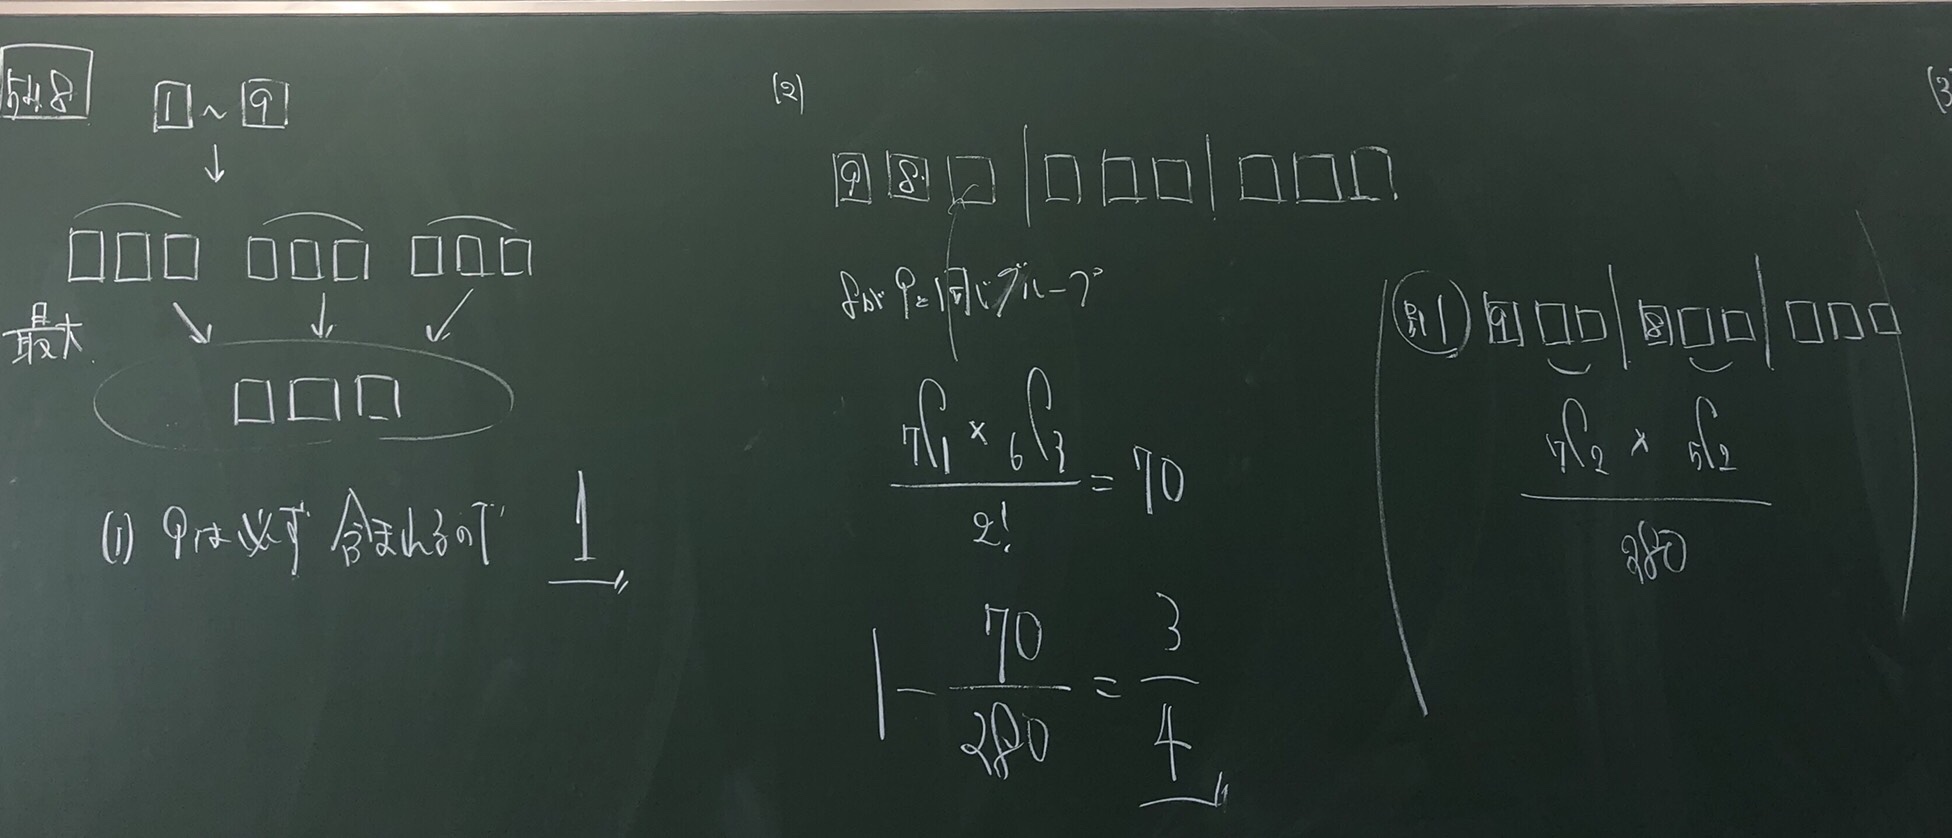 548
1 ~ 9
↓
□□□ □□□ □□□
最大 ↘ ↓ ↙
□□□
(1) 9は必ず含まれるので 1
(2)
9 8 □ | □□□ | □□□
8が9と同じグループ
(₇C₁ × ₆C₃) / 2! = 70
1 - 70/280 = 3/4
別1 9 □□ | 8 □□ | □□□
(₇C₂ × ₅C₂) / 280
(3